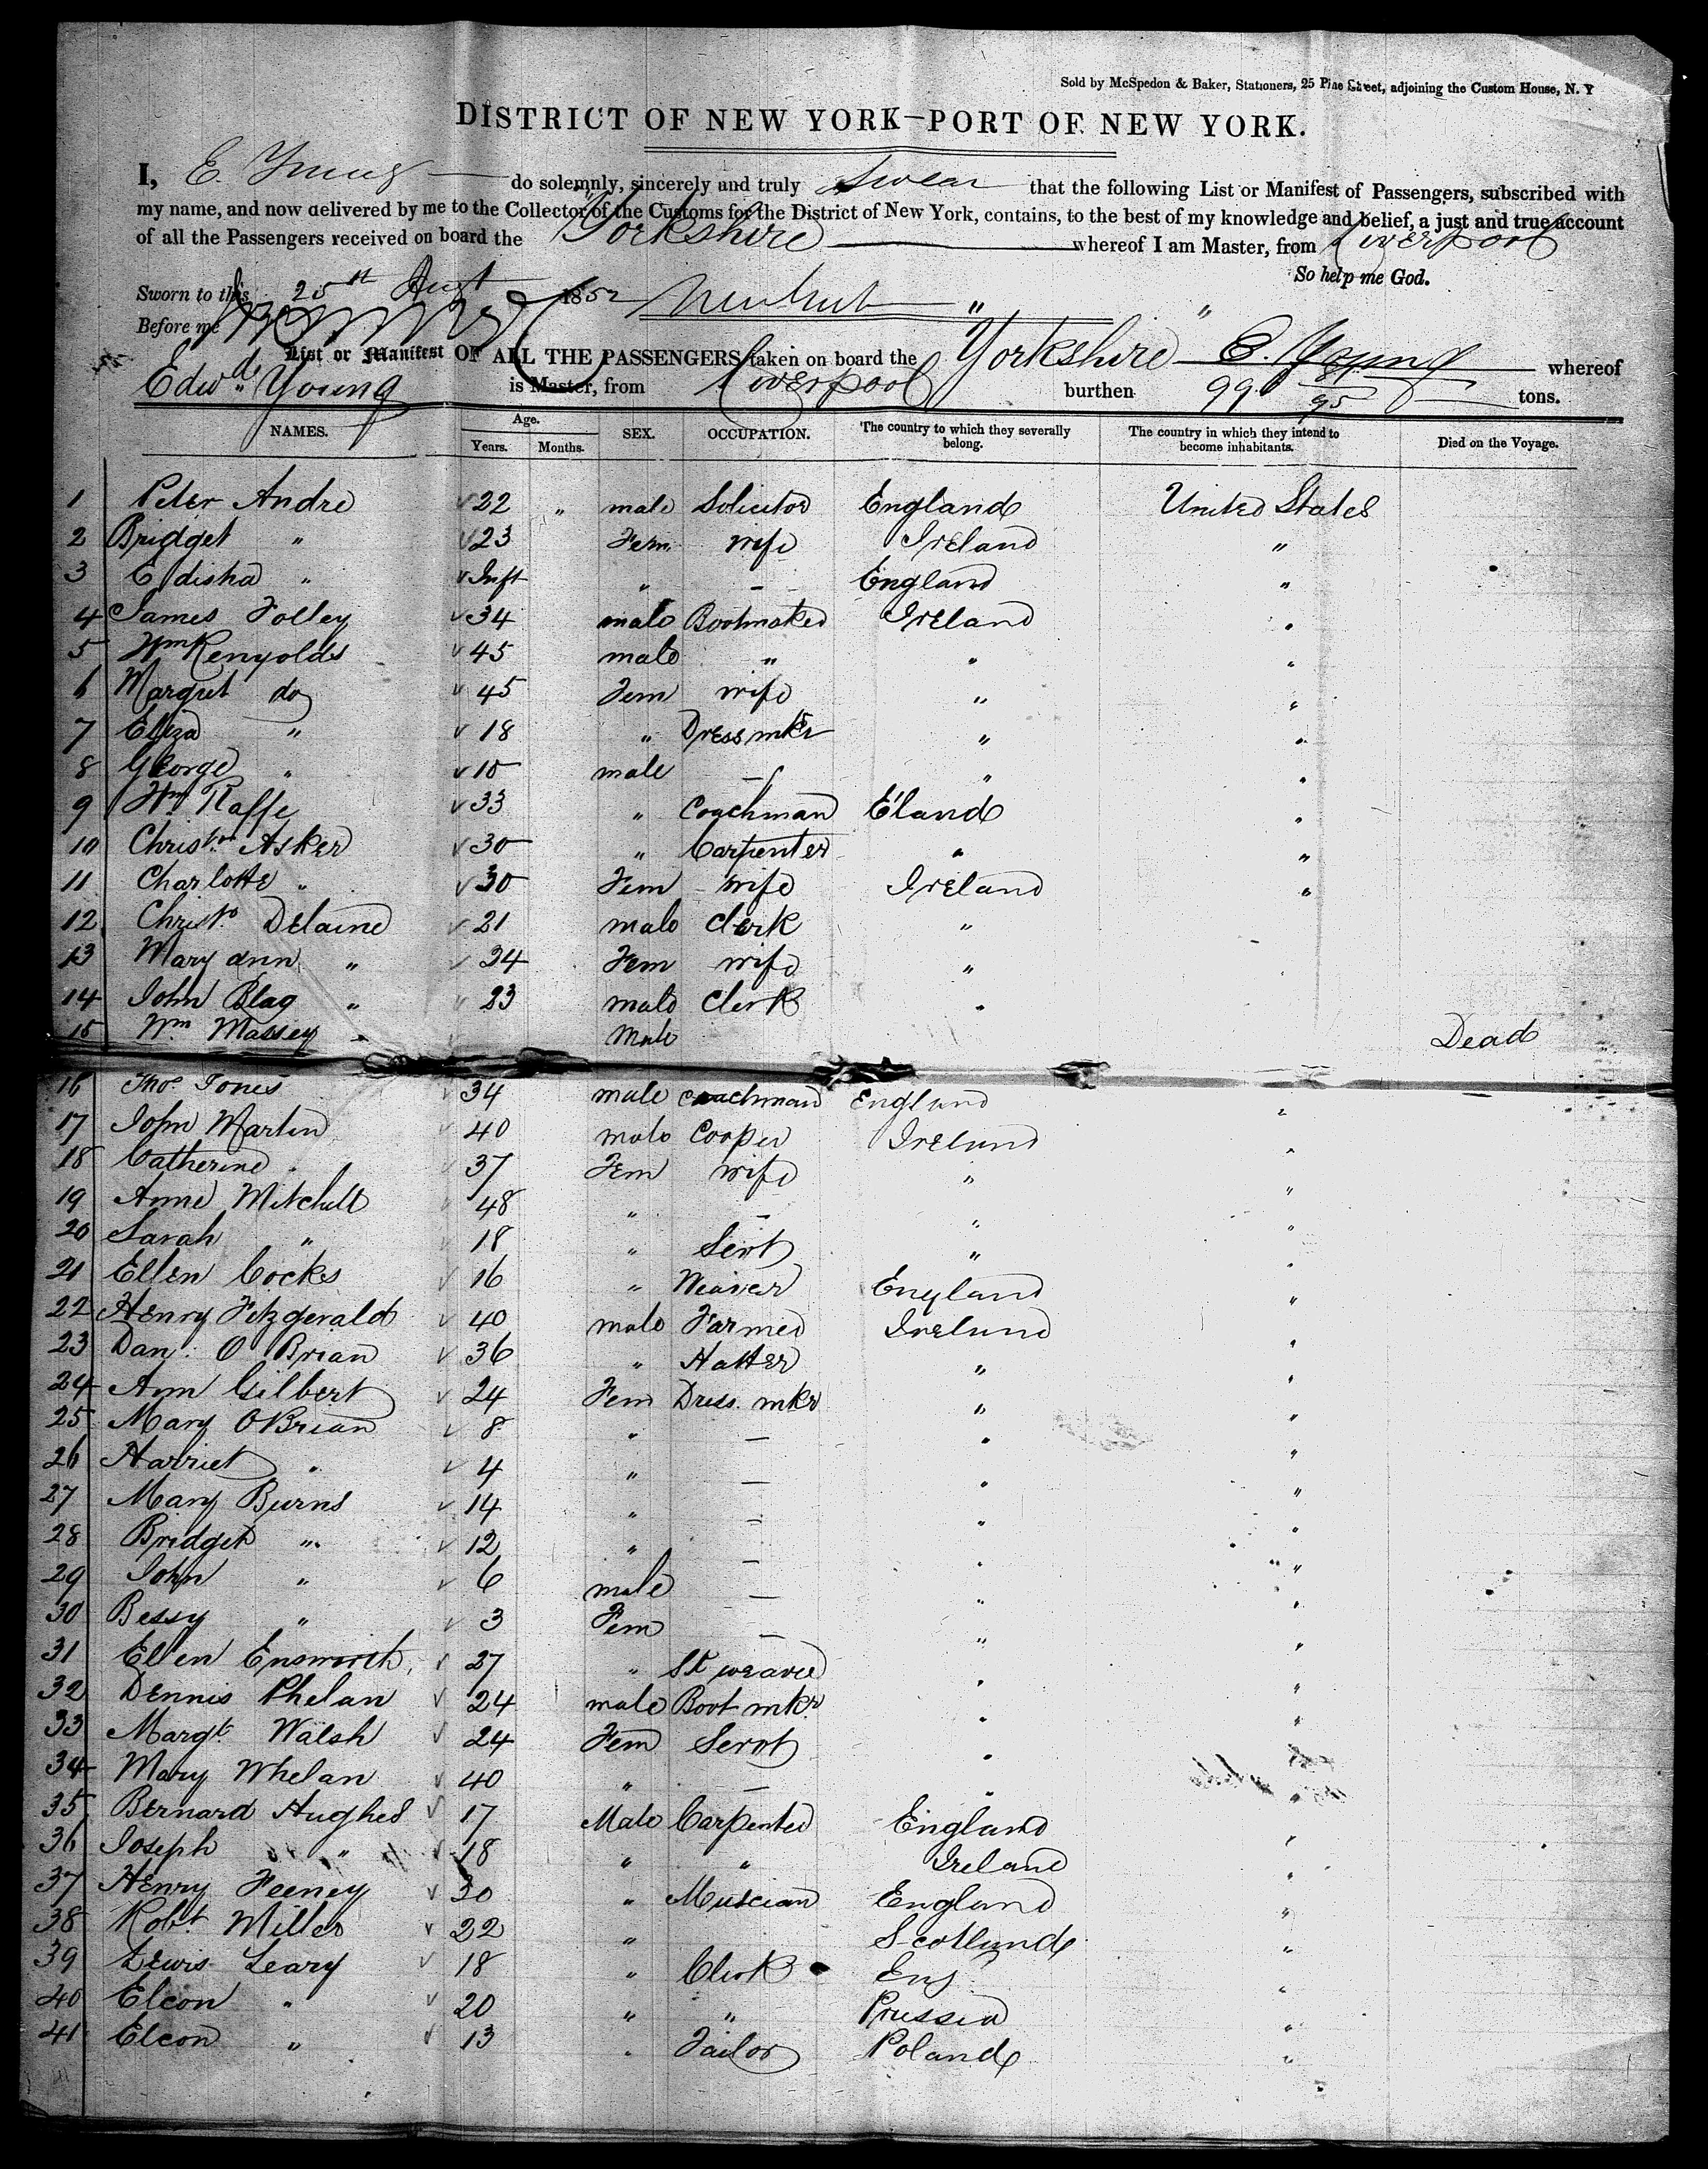 Sold by McSpedon & Baker, Stationers, 25 Pine Street, adjoining the Custom House, N. Y
DISTRICT OF NEW YORK—PORT OF NEW YORK.
I, E. Young do solemnly, sincerely and truly swear that the following List or Manifest of Passengers, subscribed with
my name, and now delivered by me to the Collector of the Customs for the District of New York, contains, to the best of my knowledge and belief, a just and true account
of all the Passengers received on board the Yorkshire whereof I am Master, from Liverpool
So help me God.
Sworn to this 25th Augt 1852
Before me
List or Manifest OF ALL THE PASSENGERS taken on board the Yorkshire E. Young whereof
Edwd. Young is Master, from Liverpool burthen 996 81/95 tons.
NAMES. Age. Years. Months. SEX. OCCUPATION. The country to which they severally belong. The country in which they intend to become inhabitants. Died on the Voyage.
1 Peter Andre 22 " male Solicitor England United States
2 Bridget " 23 Fem. wife Ireland "
3 Edisha " Inft " — England "
4 James Folley 34 male Bootmaker Ireland "
5 Wm Renyolds 45 male " " "
6 Margret do 45 Fem wife " "
7 Eliza " 18 " Dress mkr " "
8 George " 10 male — " "
9 Wm Raffe 33 " Coachman E'land "
10 Christr Asker 30 " Carpenter " "
11 Charlotte " 30 Fem wife Ireland "
12 Christo Delaine 21 male Clerk "
13 Mary ann " 34 Fem wife "
14 John Blag " 23 male Clerk "
15 Wm. Massey " Male Dead
16 Thos Jones 34 male coachman England "
17 John Martin 40 male Cooper Ireland "
18 Catherine " 37 Fem wife " "
19 Anne Mitchell 48 " — " "
20 Sarah " 18 " Servt " "
21 Ellen Cocks 16 " Weaver England "
22 Henry Fitzgerald 40 male Farmer Ireland "
23 Dan: O Brian 36 " Hatter " "
24 Ann Gilbert 24 Fem Dress. mkr " "
25 Mary OBrian 8 " — " "
26 Harriet " 4 " — " "
27 Mary Burns 14 " — " "
28 Bridget " 12 " — " "
29 John " 6 male — " "
30 Bessy " 3 Fem — " "
31 Ellen Ensworth 27 " St weaver " "
32 Dennis Phelan 24 male Boot mkr " "
33 Margt. Walsh 24 Fem Servt "
34 Mary Whelan 40 " — " "
35 Bernard Hughes 17 Male Carpenter England "
36 Joseph " 18 " " Ireland "
37 Henry Feeney 30 " Muscian England "
38 Robt Miller 22 " Scotland "
39 Lewis Leary 18 " Clerk Eng "
40 Elcon " 20 " " Prussia "
41 Elcon " 13 " Tailor Poland "